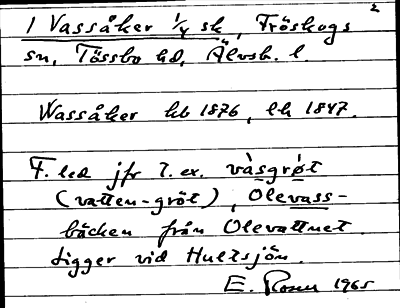 2
1 Vassåker 1/4 sk, Fröskogs
sn, Tössbo hd, Älvsb. l.
Wassåker hb 1876, lk 1847.
F. led jfr t. ex. vàsgrøt
(vatten-gröt), Olevass-
bäcken från Olevattnet.
Ligger vid Hultsjön.
E. Rosen 1965